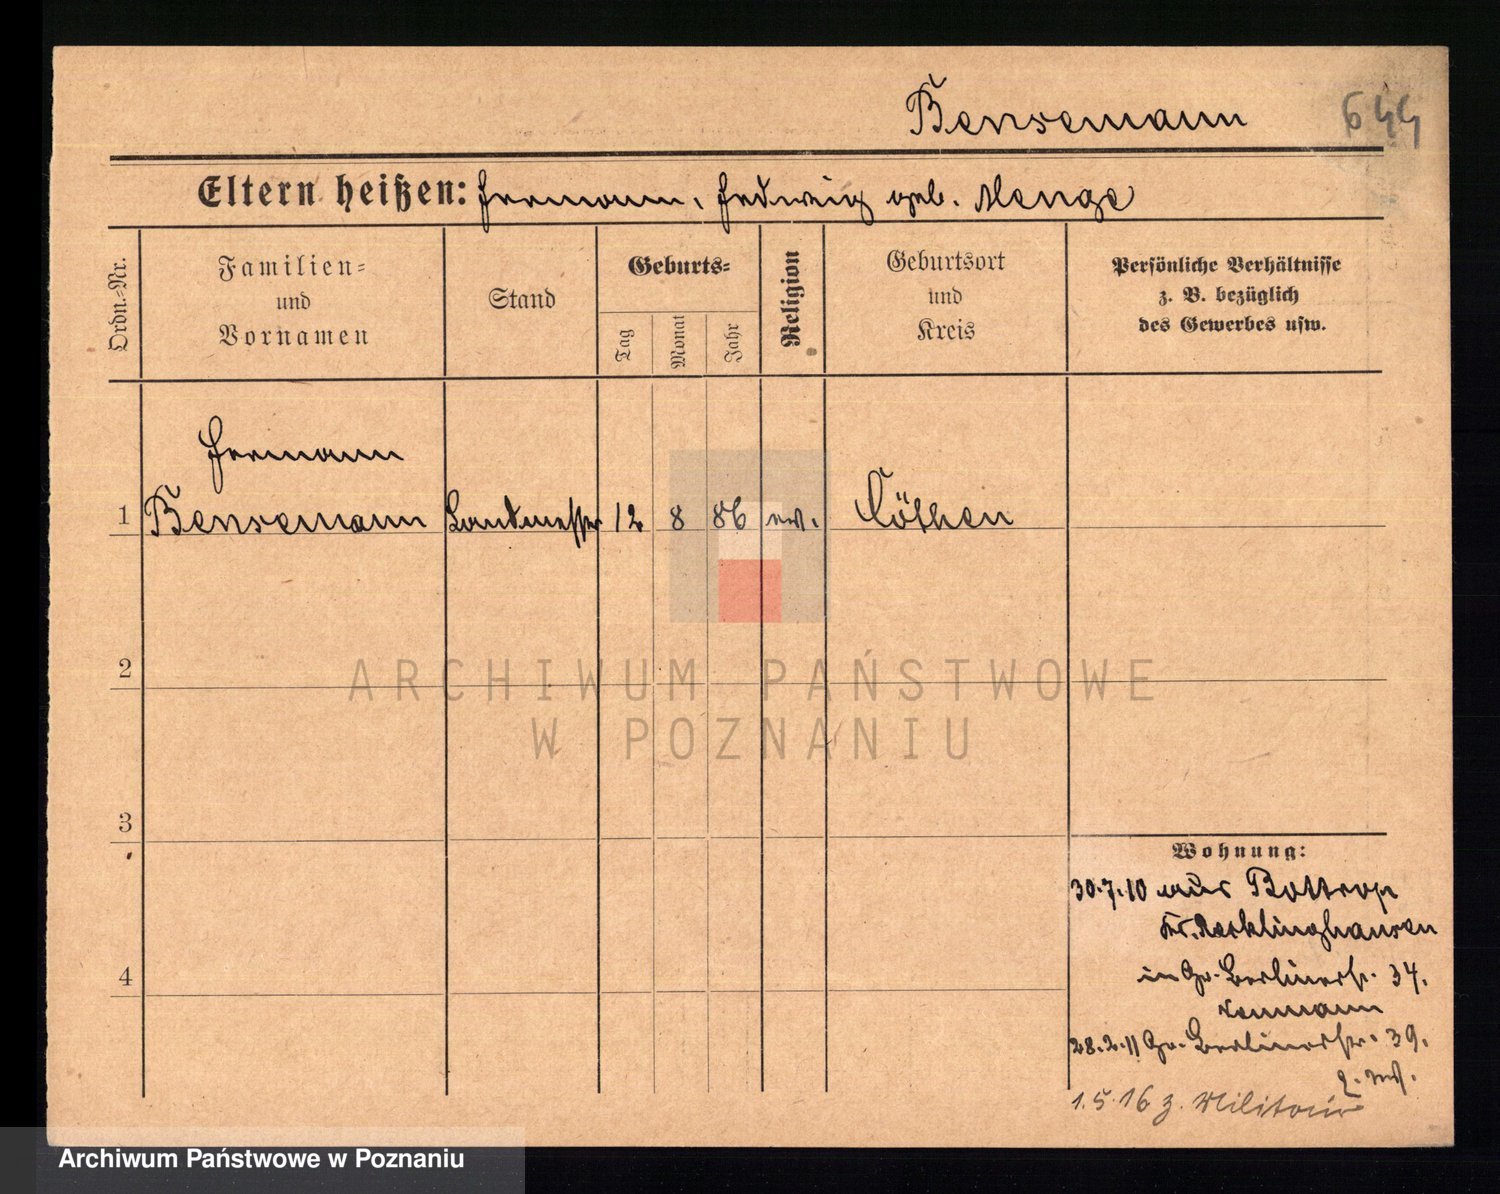 Bensemann
644
Eltern heißen: Hermann, Hedwig geb. Menge
Ordn.-Nr.
Familien-
und
Vornamen
Stand
Geburts-
Tag
Monat
Jahr
Religion
Geburtsort
und
Kreis
Persönliche Verhältnisse
z. B. bezüglich
des Gewerbes usw.
Hermann
1 Bensemann Landmesser 12 8 86 ev. Cöthen
2
ARCHIWUM PAŃSTWOWE
W POZNANIU
3
Wohnung:
30.7.10 aus Bottrop
Kr. Recklinghausen
in Gr. Berlinerstr. 34.
4
28.2.11 Gr. Berlinerstr. 39.
1.5.16 z. Militär
Archiwum Państwowe w Poznaniu